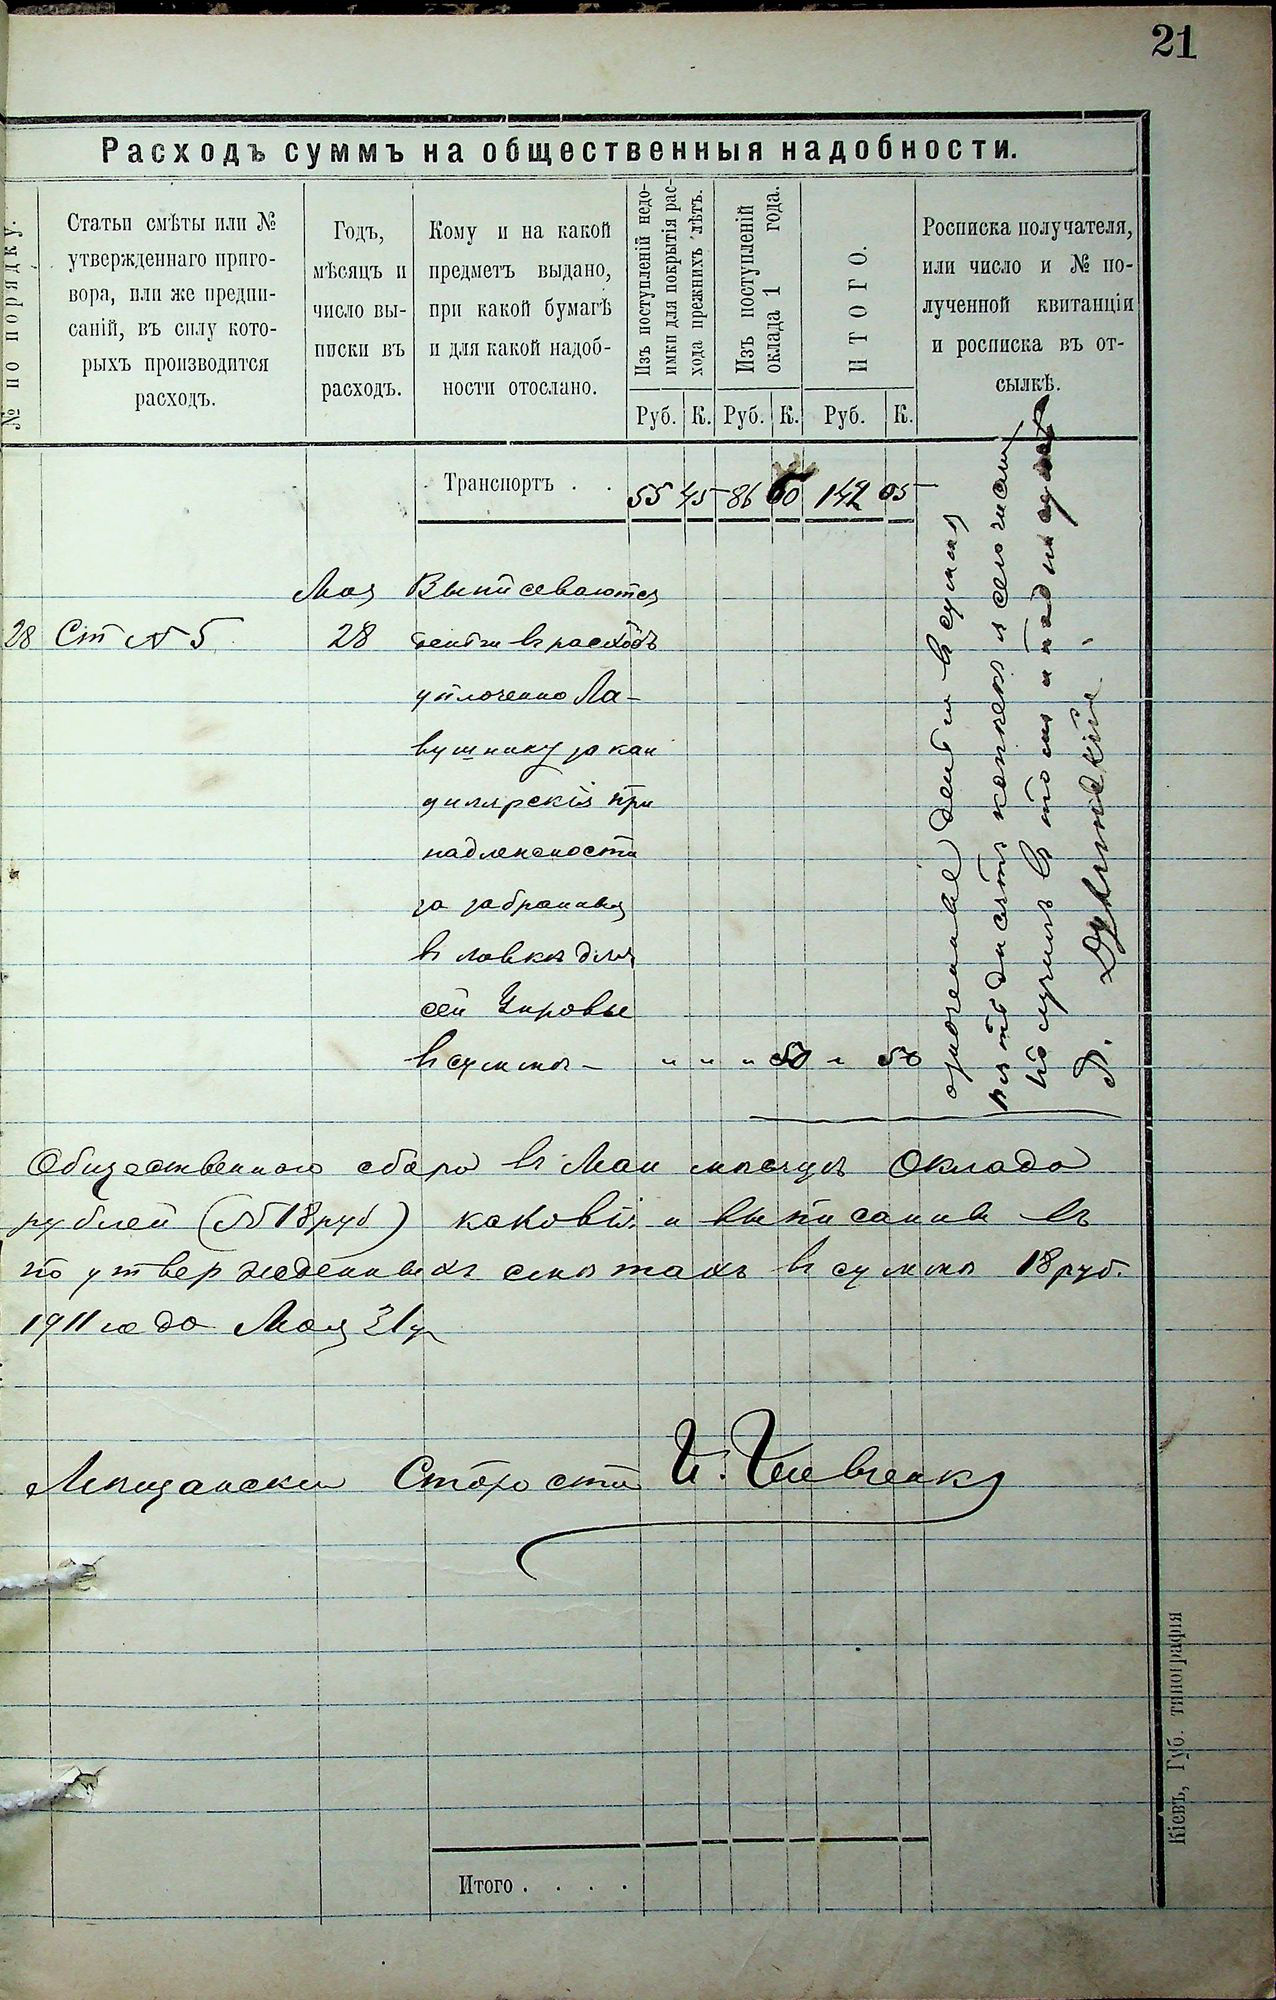 21
Расходъ суммъ на общественныя надобности.
№ по порядку.
Статьи смѣты или №
утвержденнаго приго-
вора, или же предпи-
саній, въ силу кото-
рыхъ производится
расходъ.
Годъ,
мѣсяцъ и
число вы-
писки въ
расходъ.
Кому и на какой
предметъ выдано,
при какой бумагѣ
и для какой надоб-
ности отослано.
Изъ поступленій недо-
имки для покрытія рас-
хода прежнихъ лѣтъ.
Изъ поступленій
оклада 1 года.
ИТОГО.
Росписка получателя,
или число и № по-
лученной квитанціи
и росписка въ от-
сылкѣ.
Руб. К. Руб. К. Руб. К.
Транспортъ . . 55 45 86 60 142 05
Мая Выписеваются
28 Ст № 5 28 деньги въ расходъ
уплоченно Ла-
вушнику за кан
цилярскія при
надлежности
за забранныя
въ лавки для
сей Управы
въ суммы - " " " 50 " 50
деньги въ сумы
пятьдисятъ копѣекъ
получилъ въ томъ и подписуюсь
Общественного сбора въ Маи мѣсяцѣ Оклада
рублей (18 руб) каковыя и выписанны въ
по утвержденныхъ смѣтахъ въ суммы 18 руб.
1911 го до Мая 31
Мѣщански Старости И.
Итого . . . .
Кіевъ, Губ. типографія